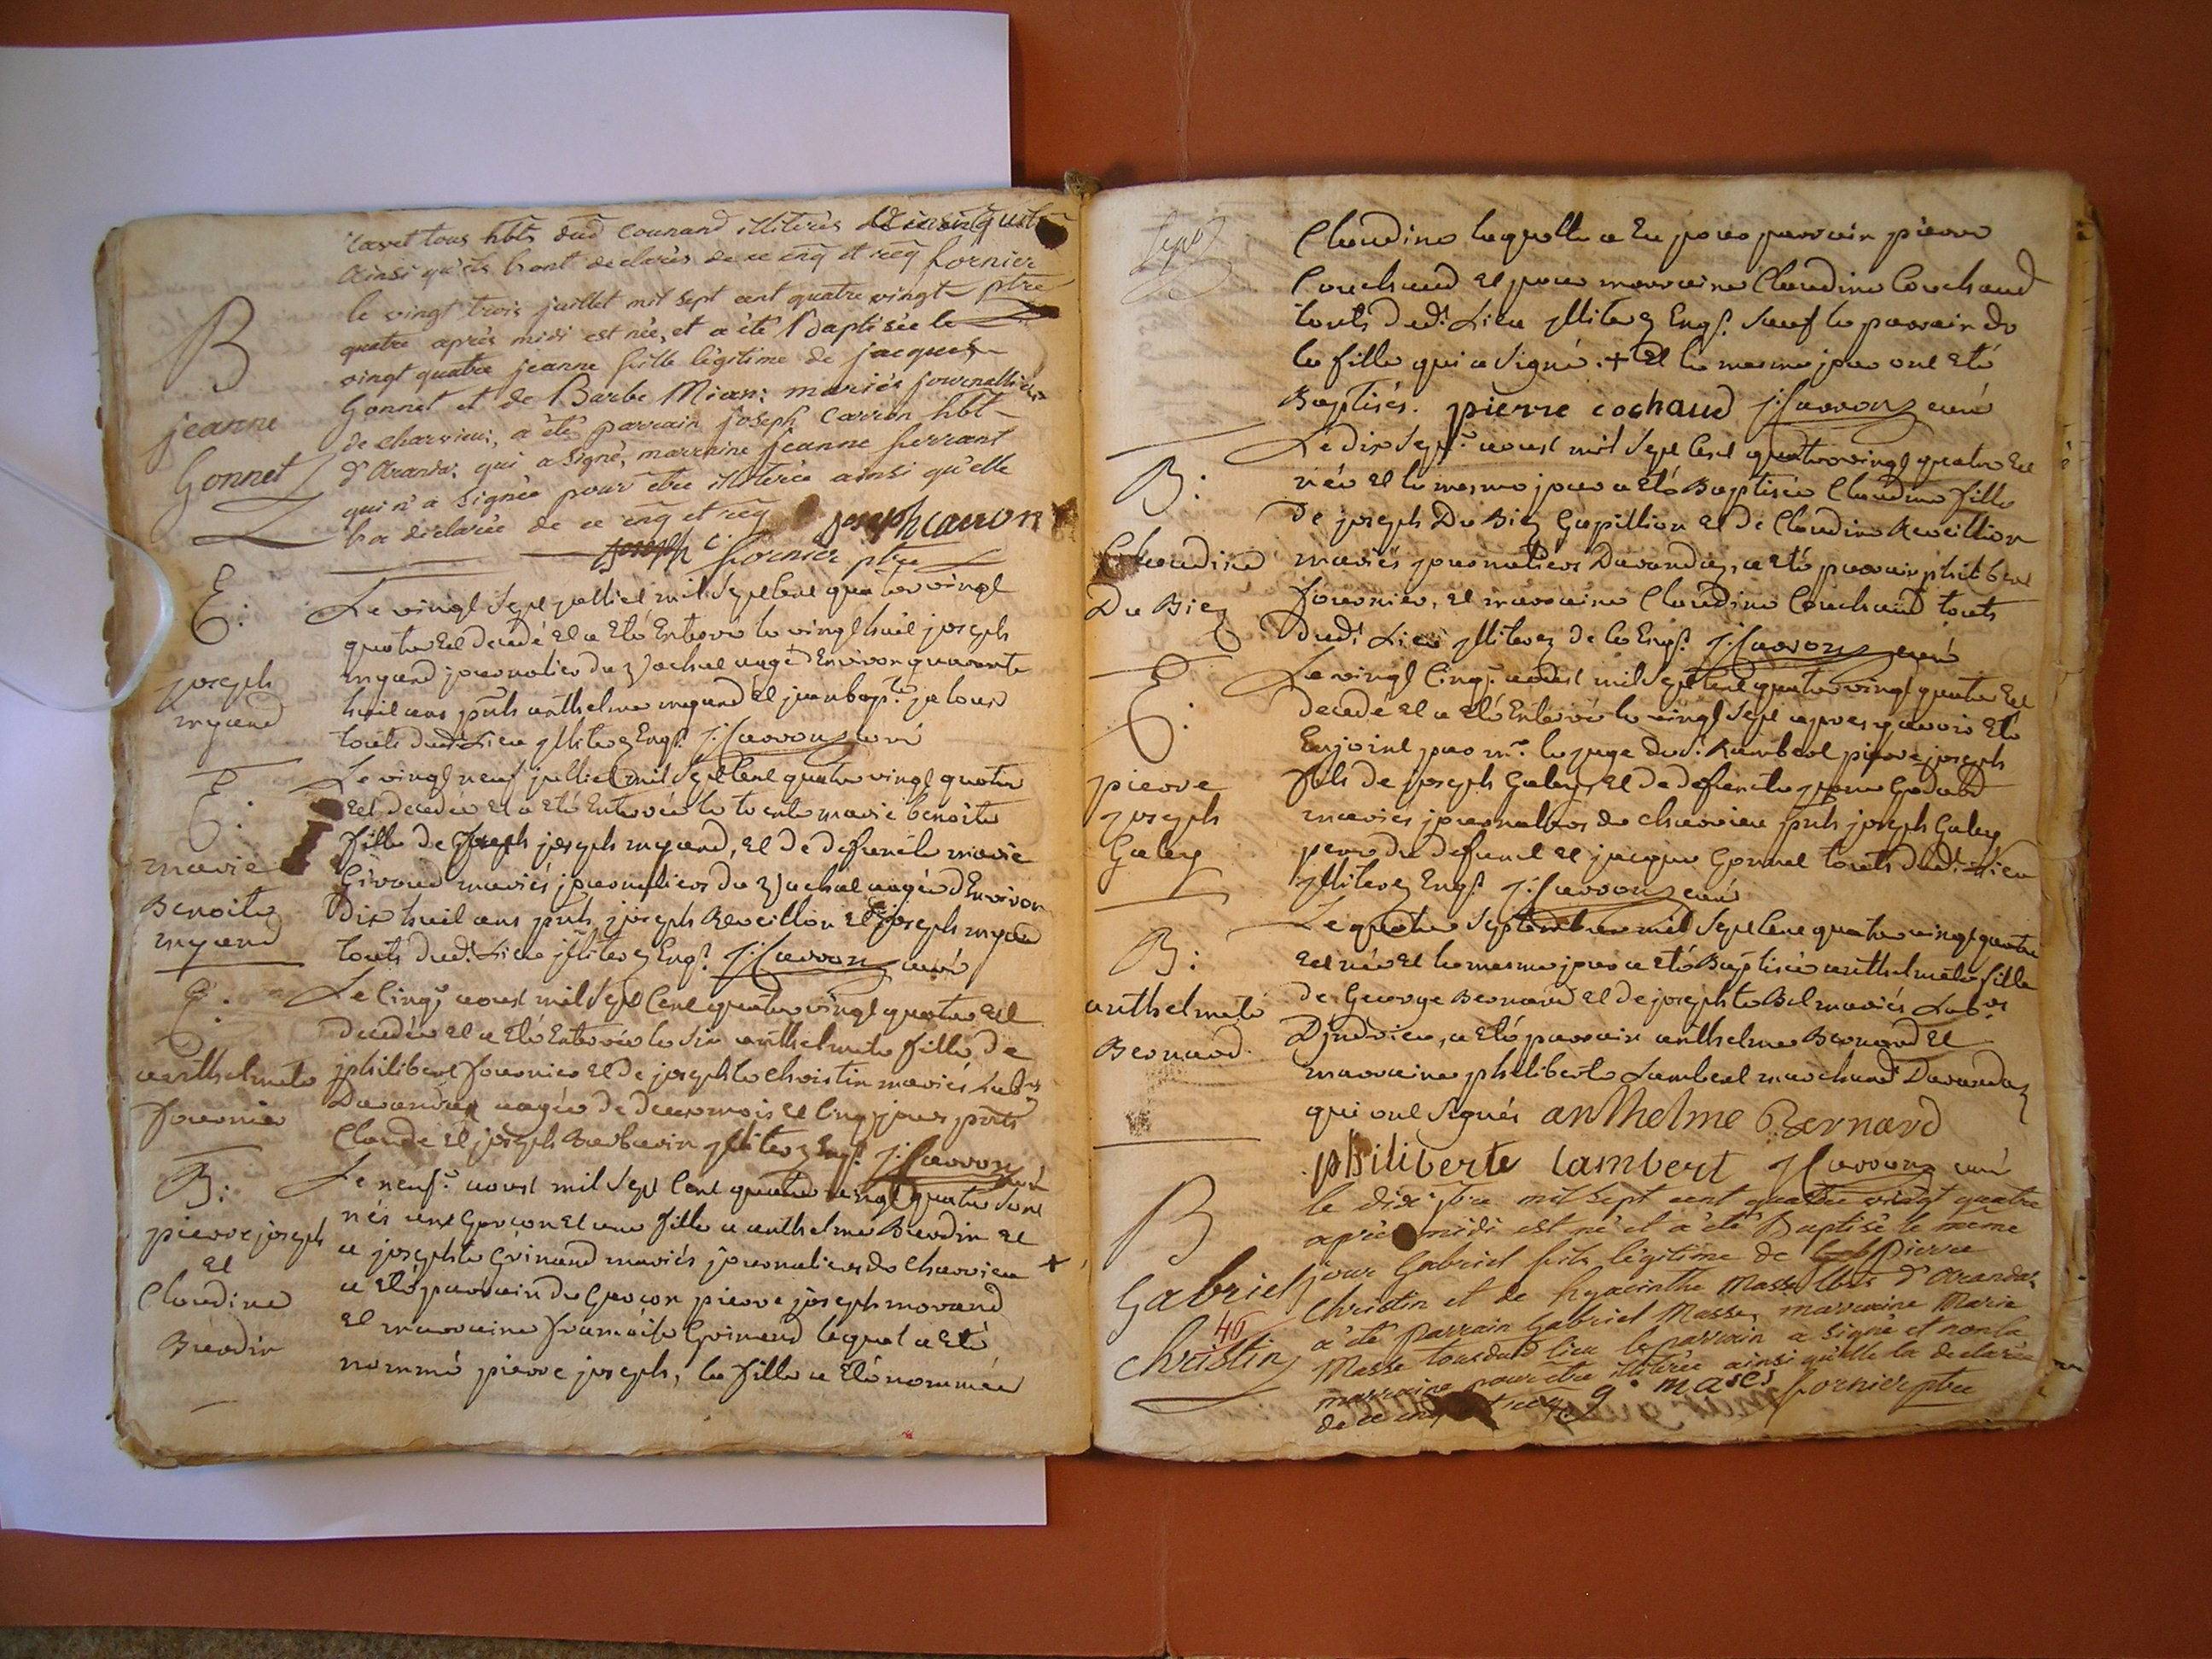 cavet tous hbts dud Counand illiterés
Ainsi qu'ils l'ont declarés de ce enq et req fornier
ptre
le vingt trois juillet mil sept cent quatre vingt
quatre après midi est née, et a été Baptisée le
vingt quatre jeanne fille légitime de jacques
Gonnet et de Barbe Mian: mariés journalliers
de charvieu; a été parrain joseph Carron hbt
d'Arandas qui a signé, marraine jeanne ferrant
qui n'a signée pour etre illiterée ainsi qu'elle
l'a déclarée de ce enq et req joseph carron
fornier ptre
B
jeanne
Gonnet
Le vingt sept julliet mil sept cent quatre vingt
quatre est decedé et a eté Enterré le vingt huit joseph
mgand journalier du agé d'Environ quarante
huit ans pnts anthelme mgand et jean bapte jalour
touts dudt Lieu jlliterez Engt j: Carron curé
E:
joseph
mgand
Le vingt neuf julliet mil sept cent quatre vingt quatre
est decedée et a eté Enterrée le trente marie benoite
fille de joseph mgand, et de defuncte marie
Giroud mariés journaliers du agée d'Environ
dix huit ans pnts joseph Reveillion et joseph mgand
touts dudt Lieu jlliterez Engt j: Carron curé
E:
marie
Benoite
mgand
Le cinqe aoust mil sept cent quatre vingt quatre est
decedée et a eté Enterrée le six anthelmete fille de
philibert fournier et de josephte christin mariés Labrs
Darandas agée de deux mois et cinq jours pnts
Claude et joseph Barbarin jlliterez Engt j: Carron
curé
E:
anthelmete
fournier
Le neufe aoust mil sept cent quatre vingt quatre sont
nés un Garcon et une fille a anthelme Bierdin et
a josephte Grinand mariés journaliers de Charvieu +
a eté parrain du Garcon pierre joseph morand
et marraine francoise Grinand lequel a eté
nommé pierre joseph, la fille a eté nommée
B:
pierre joseph
et
Claudine
Bierdin
Claudine laquelle a Eu pour parrain pierre
Couchaud et pour marraine Claudine Couchaud
touts dudt Lieu jlliterez Engt sauf le parrain de
la fille qui a signé. + et le mesme jour ont eté
Baptisés. pierre cochaud j: Carron curé
Le dix septe aoust mil sept cent quatre vingt quatre est
née et le mesme jour a eté Baptisée Claudine fille
de joseph Du Biez Gapillion et de Claudine Reveillion
mariés journaliers Darandaz, a eté parrain philibert
fournier, et marraine Claudine Couchaud touts
dudt Lieu jlliterez de ce Engt j: Carron curé
B:
Claudine
Du Biez
Le vingt cinqe aoust mil sept cent quatre vingt quatre est
decedé et a eté Enterré le vingt sept apres y avoir eté
Enjoint par mr le juge de st Rambert pierre joseph
fils de joseph Galey et de defuncte Godard
mariés journaliers de charvieu pnts joseph Galey
pere du defunct et jacque Gonnet touts dudt Lieu
jlliterez Engt j: Carron curé
E:
pierre
joseph
Galey
Le quatre septembre mil sept cent quatre vingt quatre
est née et le mesme jour a eté Baptisée anthelmete fille
de George Bernard et de josephte Bel mariés Labrs
Djndrieu, a eté parrain anthelme Bernard et
marraine philiberte Lambert marchand Darandaz
qui ont signés anthelme Bernard
philiberte lambert j: Carron curé
B:
anthelmete
Bernard
le dix 7bre mil sept cent quatre vingt quatre
après midi est né et a été Baptisé le meme
jour Gabriel fils légitime de Pierre
Christin et de hyacinthe Masse hbts d'Arandas
a été Parrain Gabriel Masse, marraine Marie
Masse tous dud lieu le parrain a signé et non la
marraine pour être illiterée ainsi qu'elle la declarée
de ce enq et req g. mases fornier ptre
B
Gabriel
46
Christin